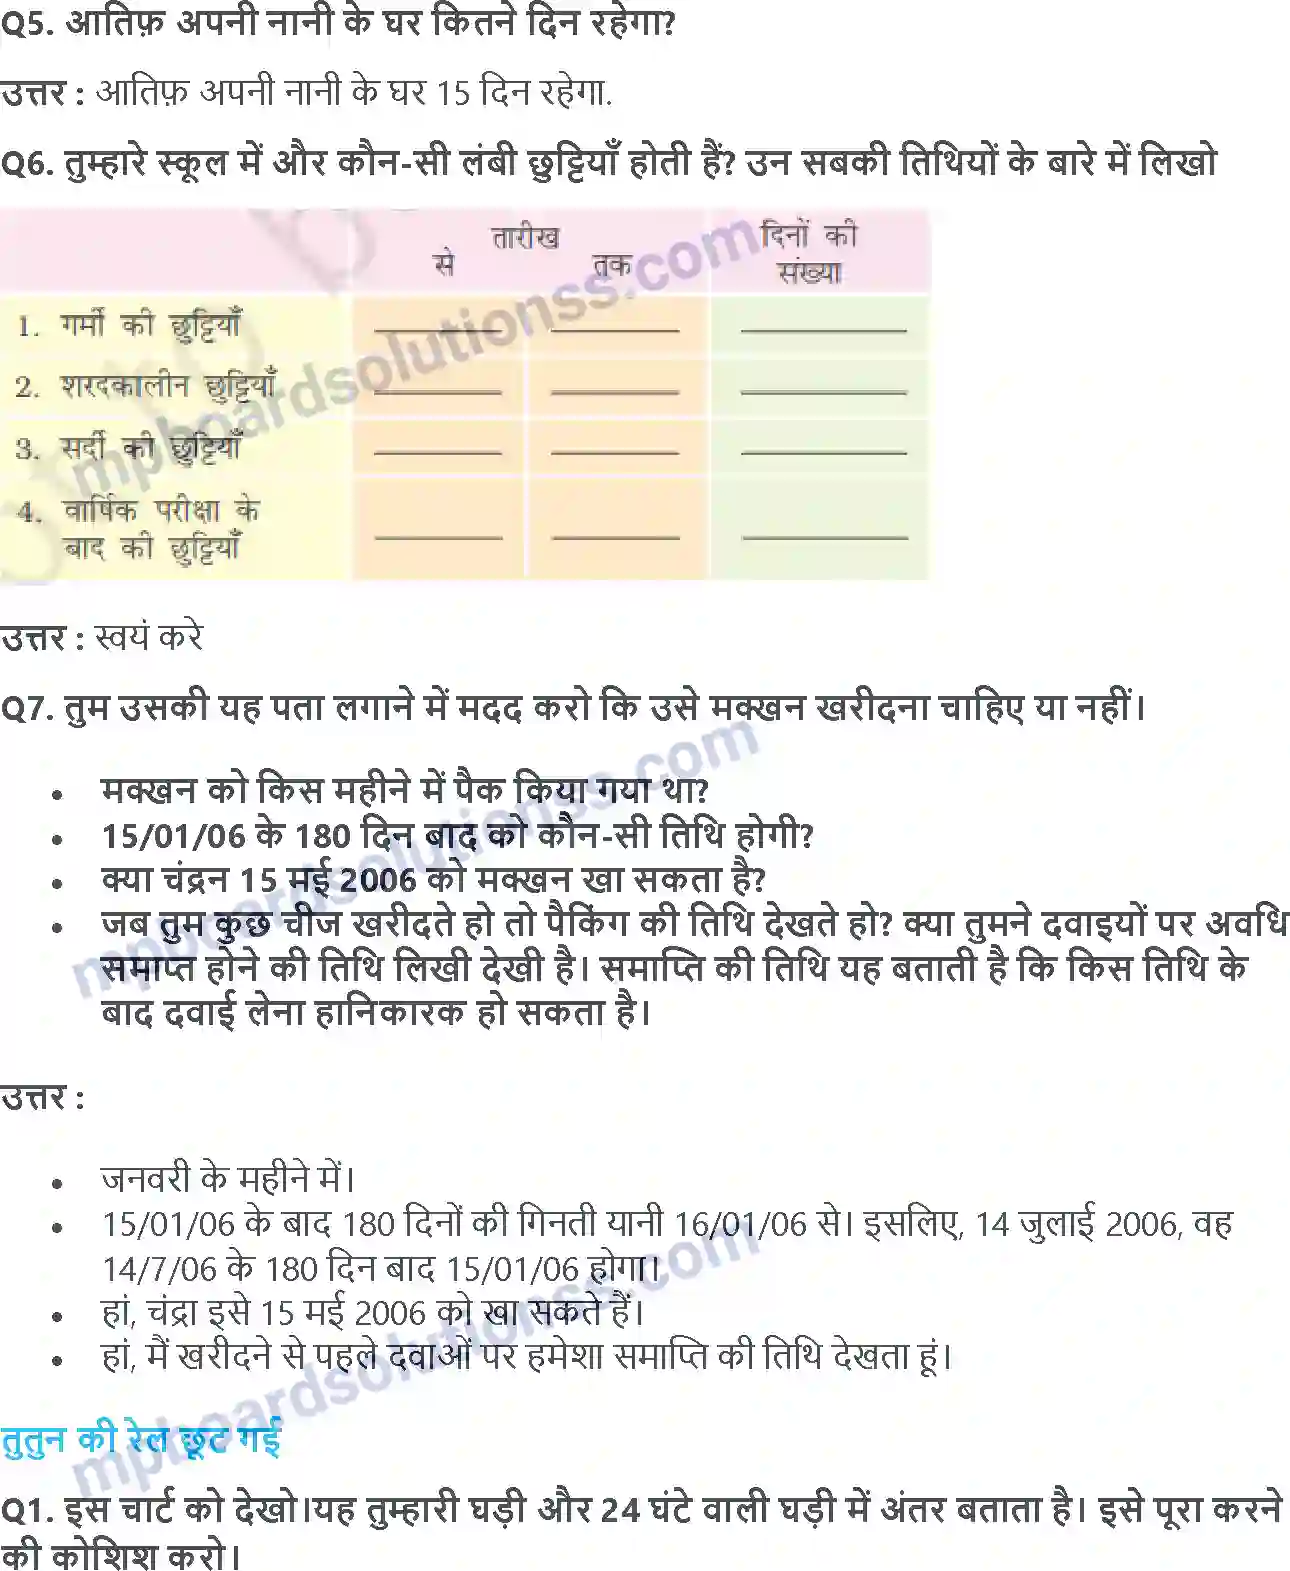 Q5. आतिफ़ अपनी नानी के घर कितने दिन रहेगा?
उत्तर : आतिफ़ अपनी नानी के घर 15 दिन रहेगा.
Q6. तुम्हारे स्कूल में और कौन-सी लंबी छुट्टियाँ होती हैं? उन सबकी तिथियों के बारे में लिखो
तारीख
से तक
दिनों की
संख्या
1. गर्मी की छुट्टियाँ
2. शरदकालीन छुट्टियाँ
3. सर्दी की छुट्टियाँ
4. वार्षिक परीक्षा के
बाद की छुट्टियाँ
mpboardsolutionss.com
उत्तर : स्वयं करे
Q7. तुम उसकी यह पता लगाने में मदद करो कि उसे मक्खन खरीदना चाहिए या नहीं।
• मक्खन को किस महीने में पैक किया गया था?
• 15/01/06 के 180 दिन बाद को कौन-सी तिथि होगी?
• क्या चंद्रन 15 मई 2006 को मक्खन खा सकता है?
• जब तुम कुछ चीज खरीदते हो तो पैकिंग की तिथि देखते हो? क्या तुमने दवाइयों पर अवधि
समाप्त होने की तिथि लिखी देखी है। समाप्ति की तिथि यह बताती है कि किस तिथि के
बाद दवाई लेना हानिकारक हो सकता है।
mpboardsolutionss.com
उत्तर :
• जनवरी के महीने में।
• 15/01/06 के बाद 180 दिनों की गिनती यानी 16/01/06 से। इसलिए, 14 जुलाई 2006, वह
14/7/06 के 180 दिन बाद 15/01/06 होगा।
• हां, चंद्रा इसे 15 मई 2006 को खा सकते हैं।
• हां, मैं खरीदने से पहले दवाओं पर हमेशा समाप्ति की तिथि देखता हूं।
mpboardsolutionss.com
तुतुन की रेल छूट गई
Q1. इस चार्ट को देखो।यह तुम्हारी घड़ी और 24 घंटे वाली घड़ी में अंतर बताता है। इसे पूरा करने
की कोशिश करो।